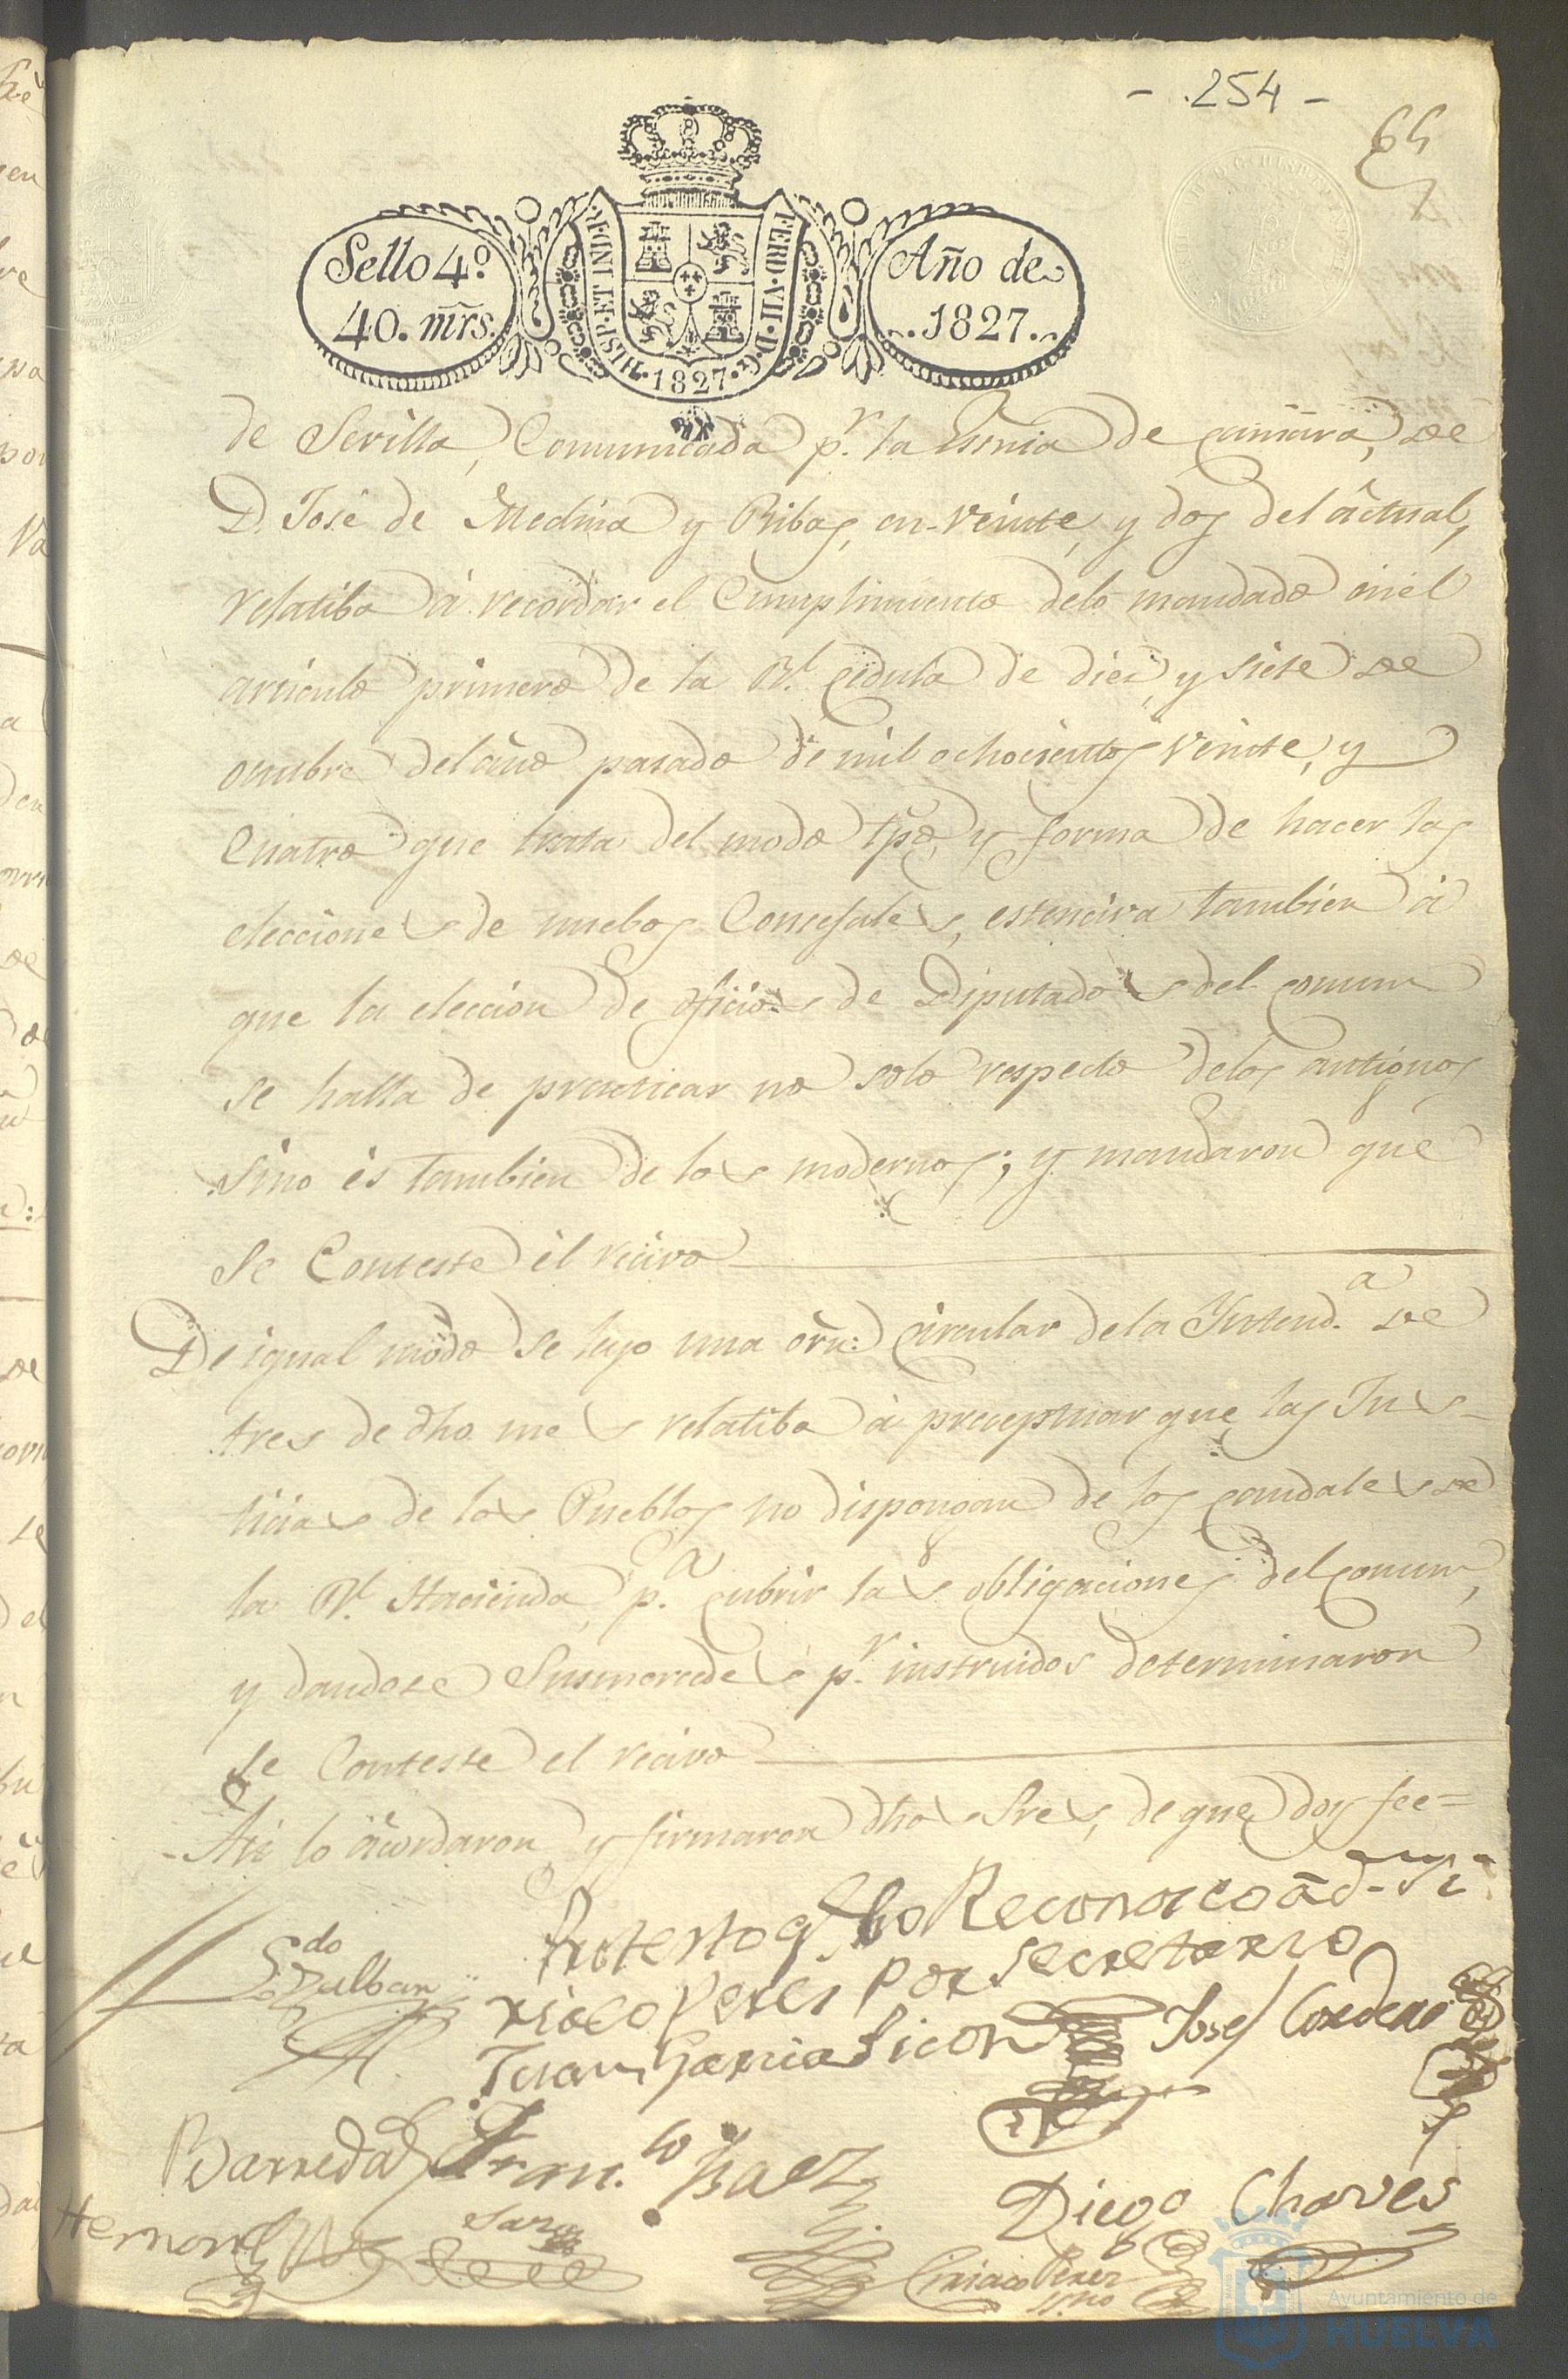 - .254 -
Sello 4º. 40. mrs.
HISP. ET IND. R.
FERD. VII. D. G.
. 1827 .
Año de 1827.
de Sevilla, Comunicada pr. la Essnia de camara, de
D. José de Medina y Ribas, en veinte, y dos del actual,
relatiba á recordar el Cumplimiento delo mandado en el
articulo primero de la Rl. Cedula de diez, y siete de
octubre del año pasado de mil ochocientos veinte, y
Cuatro que trata del modo tpo, y forma de hacer las
elecciones de nuebos Concejales, estensiva tambien á
que la eleccion de oficios de Diputados del comun
se halla de practicar no solo respecto delos antiguos
sino es tambien de los modernos; y mandaron que
se Conteste el recivo
De igual modo se leyo una orn: circular de la Yntend.a de
tres de dho mes relatiba á preceptuar que las Jus-
ticias de los Pueblos no dispongan de los caudales de
la Rl. Hacienda, p.a cubrir las obligaciones del comun,
y dandose Susmercedes pr. instruidos determinaron
se Conteste el recivo
Asi lo acordaron y firmaron dhos Sres, de que doy fee=
Protesto q. no Reconosco á d.
Perez por secretario
Juan Garcia Picon
Josef Cordero
Barreda
Fran.co Baez
Diego Chaves
Hernand
Ciriaco Perez
Ayuntamiento de
HUELVA